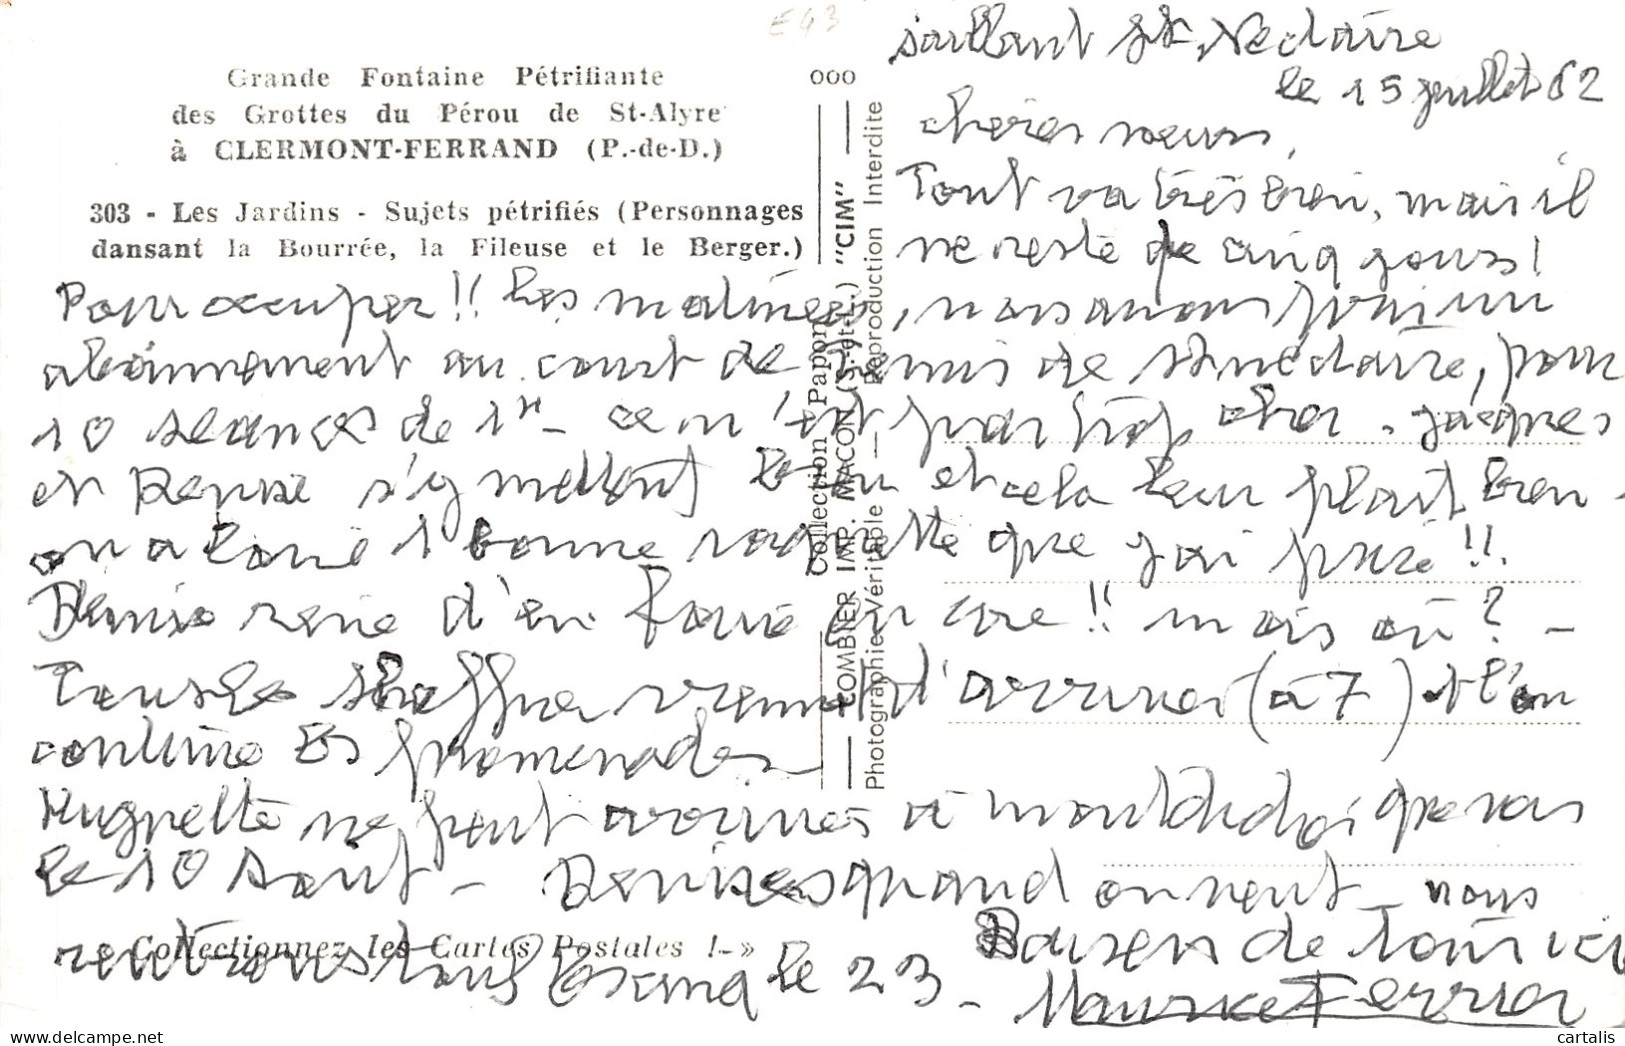 E43
Grande Fontaine Pétrifiante
des Grottes du Pérou de St-Alyre
à CLERMONT-FERRAND (P.-de-D.)
303 - Les Jardins - Sujets pétrifiés (Personnages
dansant la Bourrée, la Fileuse et le Berger.)
ooo
Collection Papon
COMBIER IMP. MACON (S.-et-L.) "CIM"
Photographie Véritable — Reproduction Interdite
« Collectionnez les Cartes Postales !-»
Saillant St Nectaire
le 15 juillet 62
chères sœurs,
Tout va très bien, mais il
ne reste que cinq jours !
Pour occuper !! les matinées, nous avons pris un
abonnement au court de tennis de St Nectaire, pour
10 séances de 1h - ce n'est pas trop cher - Jacques
et Denise s'y mettent et cela leur plait bien -
on a loué 1 bonne raquette que j'ai
Denise d'en encore !! mais où ? -
Tous les viennent d'arriver (à 7) et l'on
continue les promenades
Huguette ne peut à que vers
le 10 Août - Denise quand on veut - nous
rentrons tous le 23 -
Baisers de tous ici
Maurice Ferrier